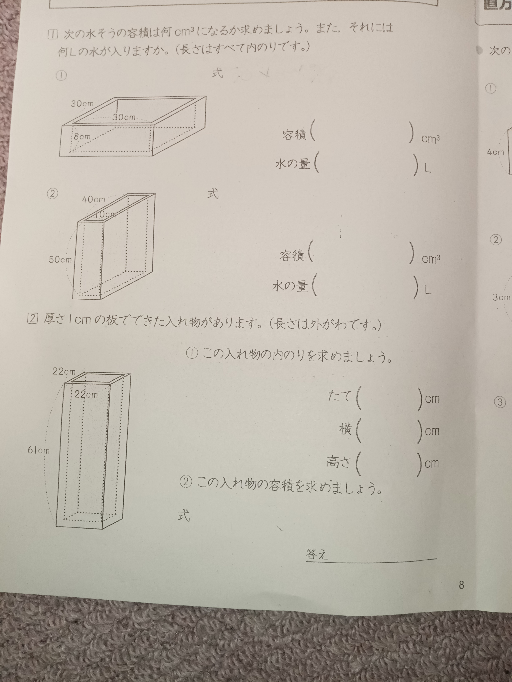 1 次の水そうの容積は何cm³になるか求めましょう。また、それには
何Lの水が入りますか。(長さはすべて内のりです。)
① 式
30cm
30cm
8cm
容積( ) cm³
水の量( ) L
② 式
40cm
10cm
50cm
容積( ) cm³
水の量( ) L
2 厚さ1cmの板でできた入れ物があります。(長さは外がわです。)
① この入れ物の内のりを求めましょう。
22cm
22cm
61cm
たて( )cm
横( )cm
高さ( )cm
② この入れ物の容積を求めましょう。
式
答え
8
直方
次の
①
4cm
②
3cm
③